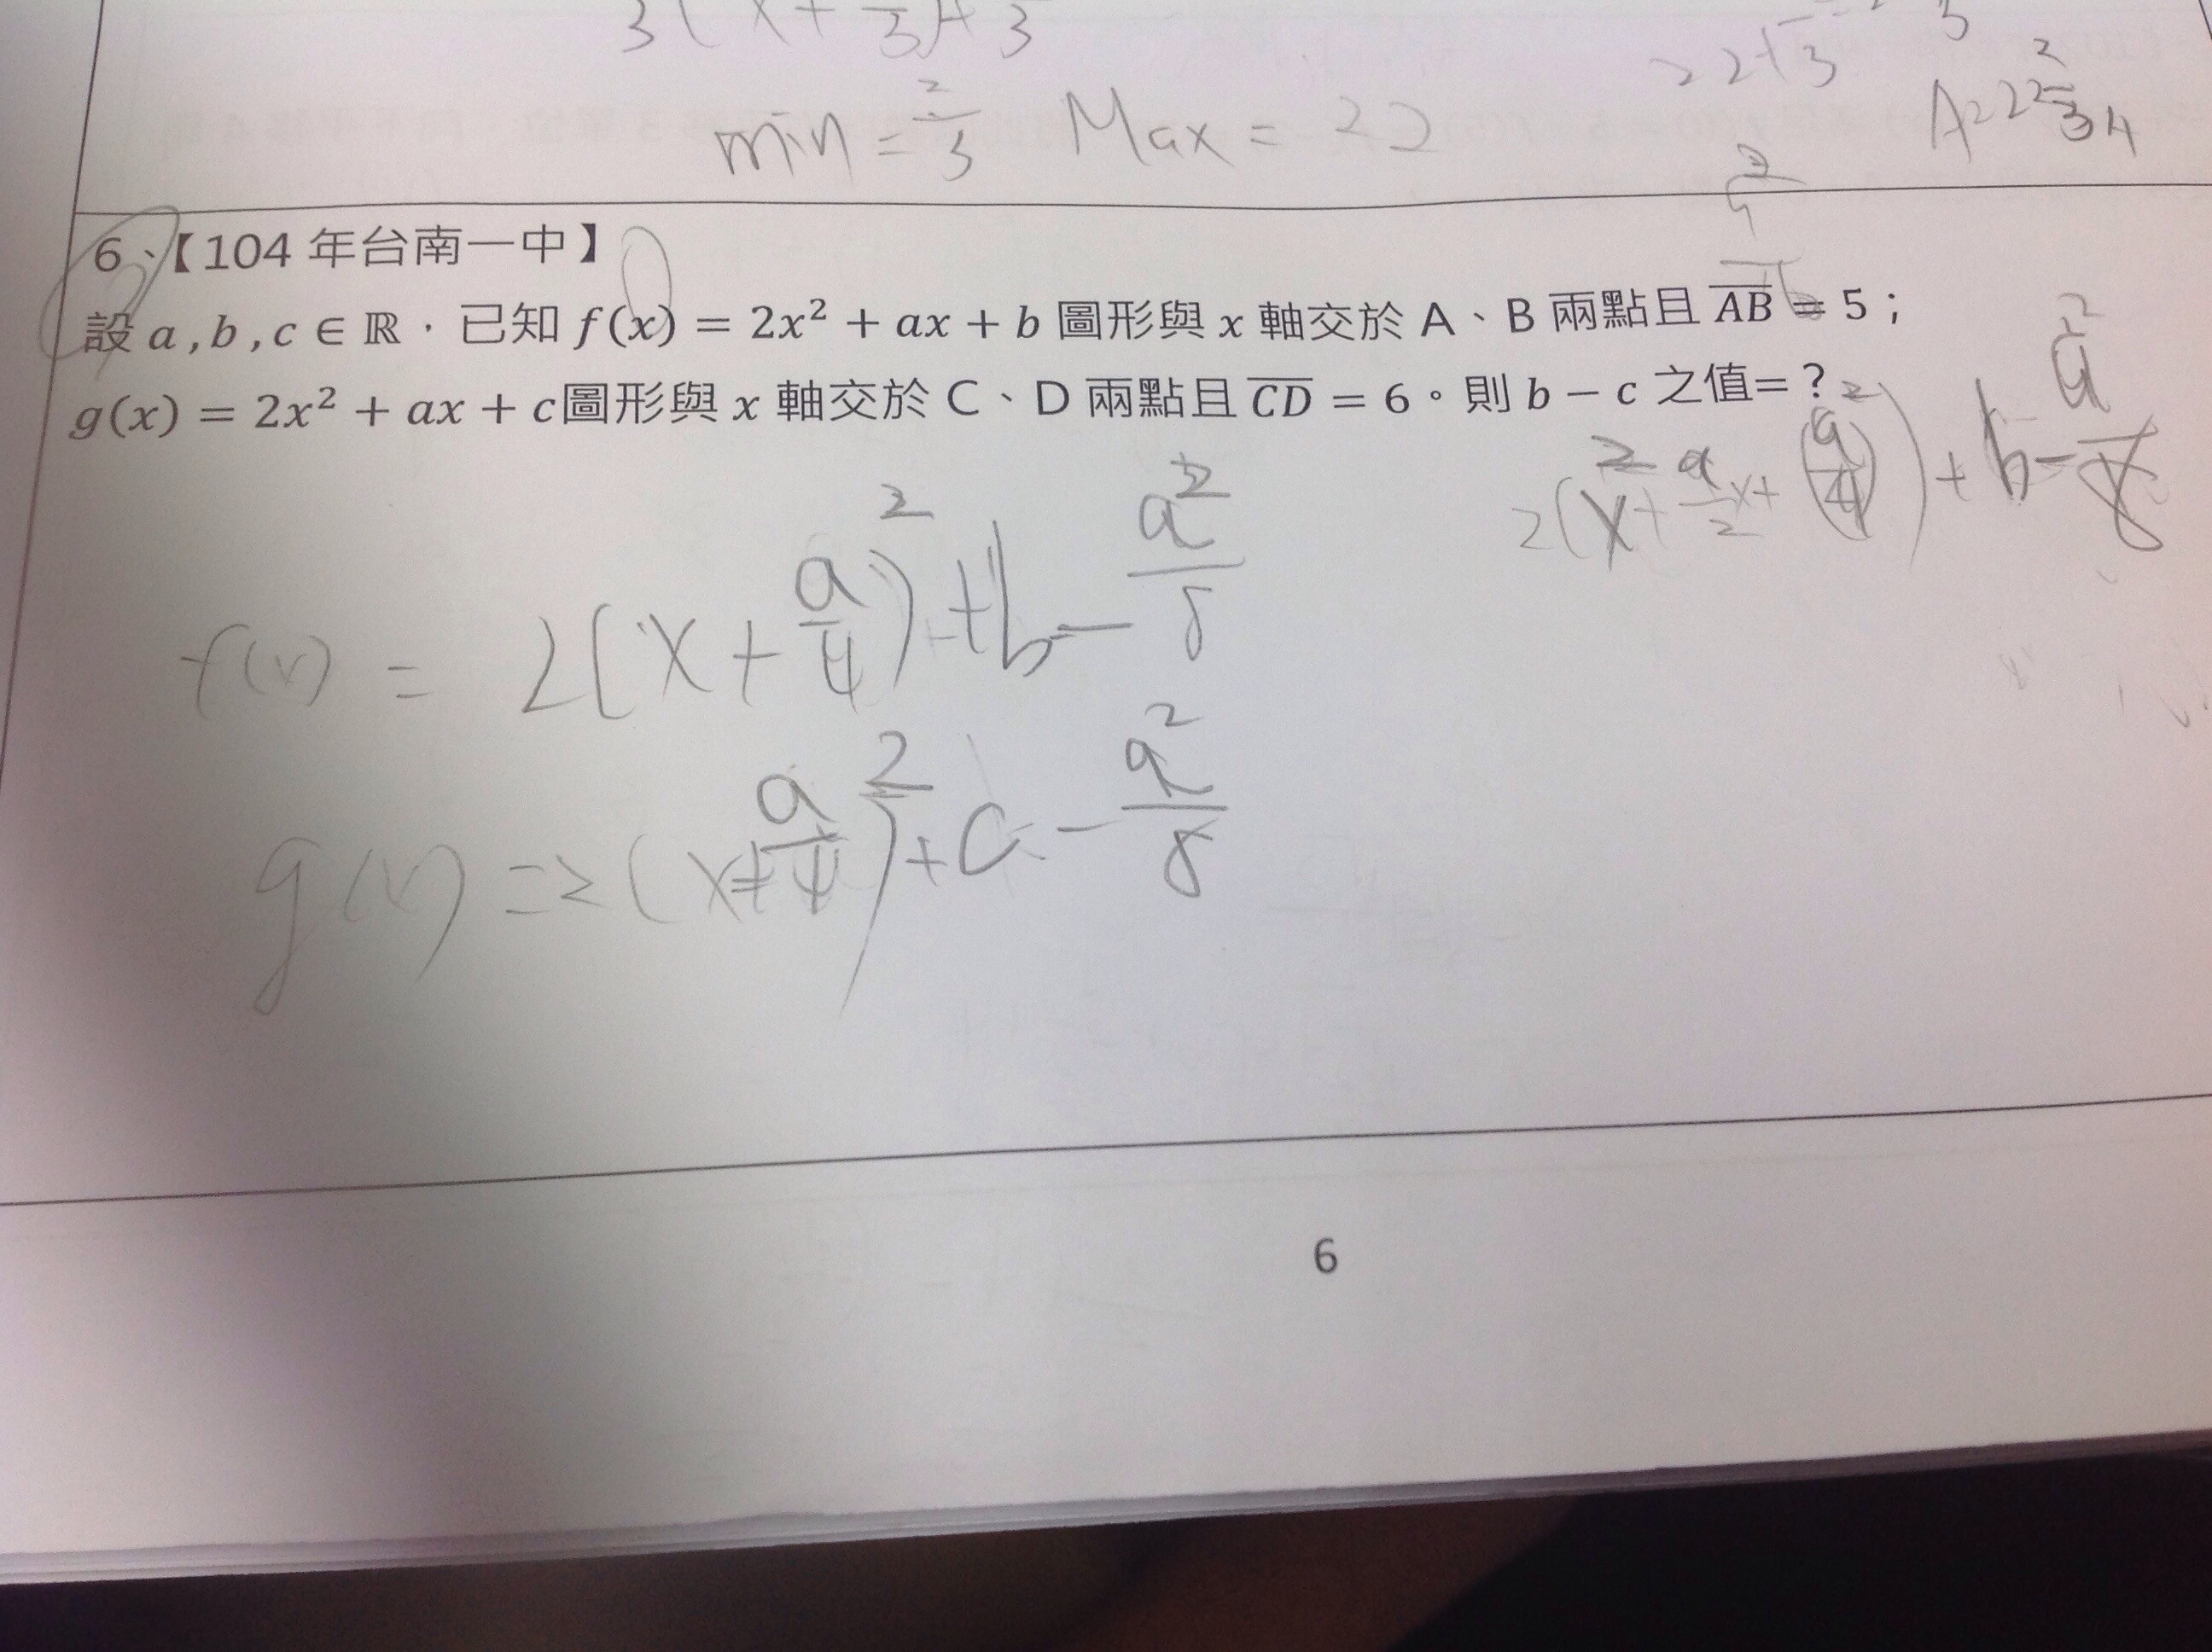 min = 2/3 Max = 22
6、【104 年台南一中】
設 a , b , c ∈ ℝ，已知 f(x) = 2x² + ax + b 圖形與 x 軸交於 A、B 兩點且 \overline{AB} = 5；
g(x) = 2x² + ax + c圖形與 x 軸交於 C、D 兩點且 \overline{CD} = 6。則 b − c 之值=？
2(x² + a/2 x + (a/4)²) + b - a²/8
f(x) = 2(x + a/4)² + b - a²/8
g(x) = 2(x + a/4)² + c - a²/8
6